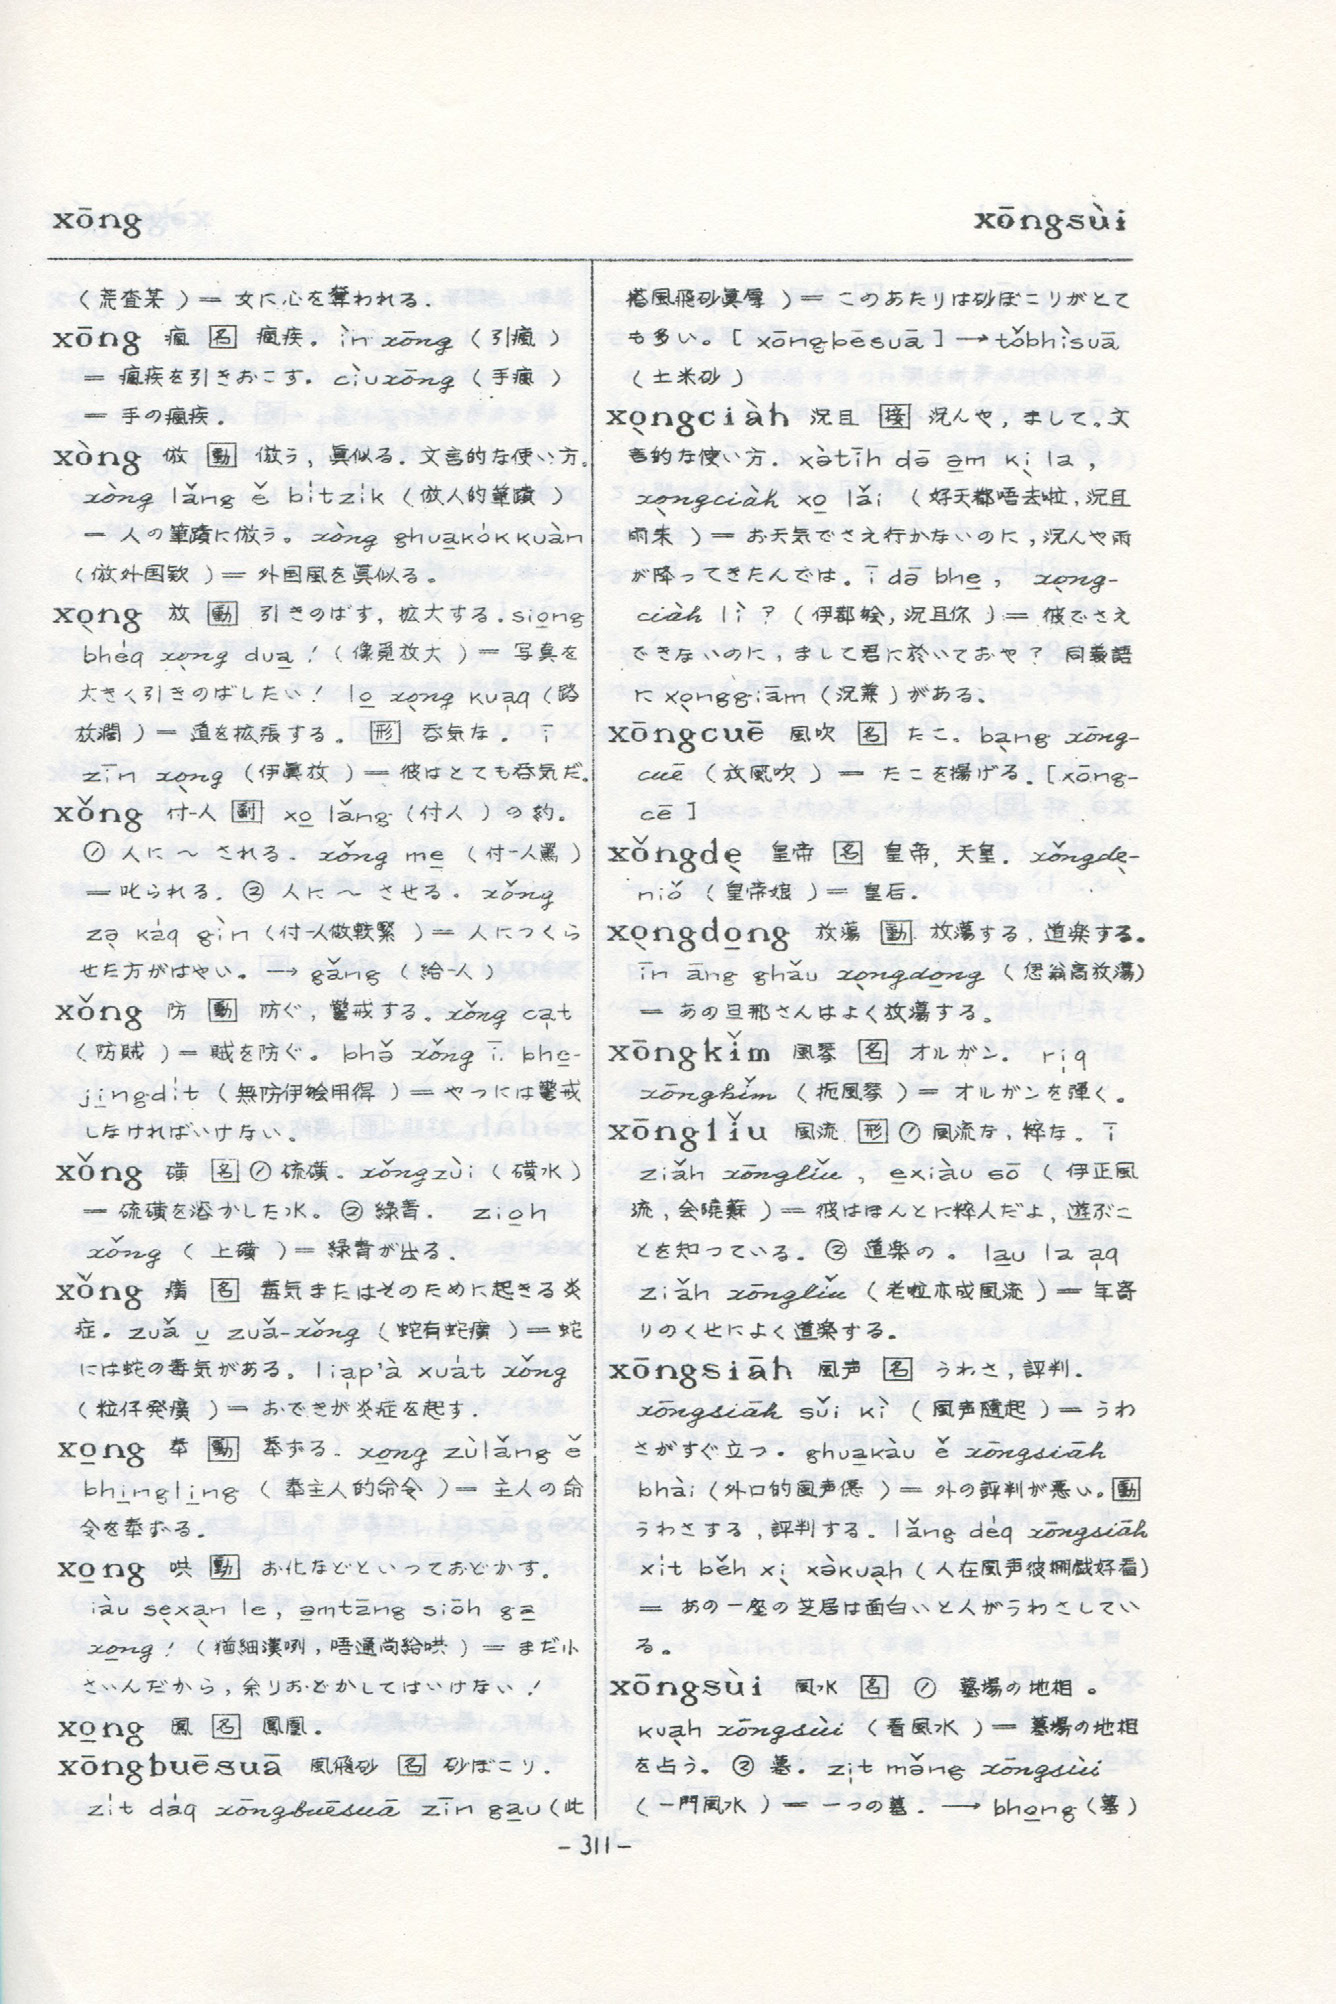 xōng
xōngsùi
（荒査某）＝ 女に心を奪われる．
xōng 瘋 [名] 瘋疾。ìn xōng（引瘋）
＝ 瘋疾を引きおこす。cìuxōng（手瘋）
＝ 手の瘋疾．
xòng 倣 [動] 倣う，眞似る．文言的な使い方．
xòng lǎng ě bı̍tzı̍k（倣人的筆蹟）
＝ 人の筆蹟に倣う。xòng ghua̱kȯkkuàn
（倣外国欵）＝ 外国風を眞似る。
xo̖ng 放 [動] 引きのばす，拡大する．sio̱ng
bhėq xo̖ng dua̱！（像覓放大）＝ 写真を
大きく引きのばしたい！ lo̱ xo̖ng kuaq（路
放濶）＝ 道を拡張する。[形] 呑気な． ī
zīn xo̖ng（伊眞放）＝ 彼はとても呑気だ．
xǒng 付人 [副] xo̱ lǎng（付人）の約．
① 人に～される．xǒng me̱（付人罵）
＝ 叱られる．② 人に～させる．xǒng
zə̖ káq gìn（付人做較緊）＝ 人につくら
せた方がはやい。→ gǎng（給人）
xǒng 防 [動] 防ぐ，警戒する。xǒng ca̱t
（防賊）＝ 賊を防ぐ。bhə̌ xǒng ī bhe̱-
ji̱ngdı̍t（無防伊𣍐用得）＝ やつには警戒
しなければいけない。
xǒng 磺 [名] ① 硫磺．xǒngzùi（磺水）
＝ 硫磺を溶かした水。② 緑青． zio̱h
xǒng（上磺）＝ 緑青が出る．
xǒng 癀 [名] 毒気またはそのために起きる炎
症．zuǎ u̱ zuǎ-xǒng（蛇有蛇癀）＝ 蛇
には蛇の毒気がある。lia̱p'à xuȧt xǒng
（粒仔発癀）＝ おできが炎症を起す．
xo̱ng 奉 [動] 奉ずる．xo̱ng zùlǎng ě
bhi̱ngli̱ng（奉主人的命令）＝ 主人の命
令を奉ずる．
xo̱ng 哄 [動] お化などといっておどかす．
iàu se̖xa̖n le, a̱mtāng siōh ga̱
xo̱ng！（猶細漢咧，唔通尚給哄）＝ まだ小
さいんだから，余りおどかしてはいけない！
xo̱ng 鳳 [名] 鳳凰．
xōngbuēsuā 風飛砂 [名] 砂ぼこり．
zı̍t dáq xōngbuēsuā zīn ga̱u（此
搭風飛砂眞厚）＝ このあたりは砂ぼこりがとて
も多い。[xōngbēsuā] → tǒbhìsuā
（土米砂）
xo̖ngciàh 況且 [接] 況んや，まして。文
言的な使い方．xə̀tīh də a̱m ki̖ la,
xo̖ngciàh xo̱ lǎi（好天都唔去啦，況且
雨来）＝ お天気でさえ行かないのに，況んや雨
が降ってきたんでは．ī də bhe̱, xo̖ng-
ciàh lì？（伊都𣍐，況且你）＝ 彼でさえ
できないのに，まして君に於いておや？ 同義語
に xo̖nggiām（況兼）がある。
xōngcuē 風吹 [名] たこ．ba̖ng xōng-
cuē（放風吹）＝ たこを揚げる．[xōng-
cē]
xǒngde̖ 皇帝 [名] 皇帝，天皇．xǒngde̖-
niǒ（皇帝娘）＝ 皇后．
xo̖ngdo̱ng 放蕩 [動] 放蕩する，道楽する．
īn āng ghǎu xo̖ngdo̱ng（𪜶翁高放蕩）
＝ あの旦那さんはよく放蕩する。
xōngkǐm 風琴 [名] オルガン． ri̖q
xōngkǐm（扼風琴）＝ オルガンを弾く。
xōnglǐu 風流 [形] ① 風流な，粋な．ī
ziǎh xōnglǐu, e̱xiàu sō（伊正風
流，会曉蘇）＝ 彼はほんとに粋人だよ，遊ぶこ
とを知っている．② 道楽の． la̱u la a̖q
ziǎh xōnglǐu（老啦亦成風流）＝ 年寄
りのくせによく道楽する．
xōngsiāh 風声 [名] うわさ，評判．
xōngsiāh sǔi kì（風声隨起）＝ うわ
さがすぐ立つ．ghua̱kàu ě xōngsiāh
bhài（外口的風声僫）＝ 外の評判が悪い．[動]
うわさする，評判する．lǎng deq xōngsiāh
xı̍t běh xi̖ xə̀kua̖h（人在風声彼棚戯好看）
＝ あの一座の芝居は面白いと人がうわさしてい
る。
xōngsùi 風水 [名] ① 墓場の地相．
kua̖h xōngsùi（看風水）＝ 墓場の地相
を占う．② 墓．zi̖t mǎng xōngsùi
（一門風水）＝ 一つの墓．→ bho̱ng（墓）
- 311 -